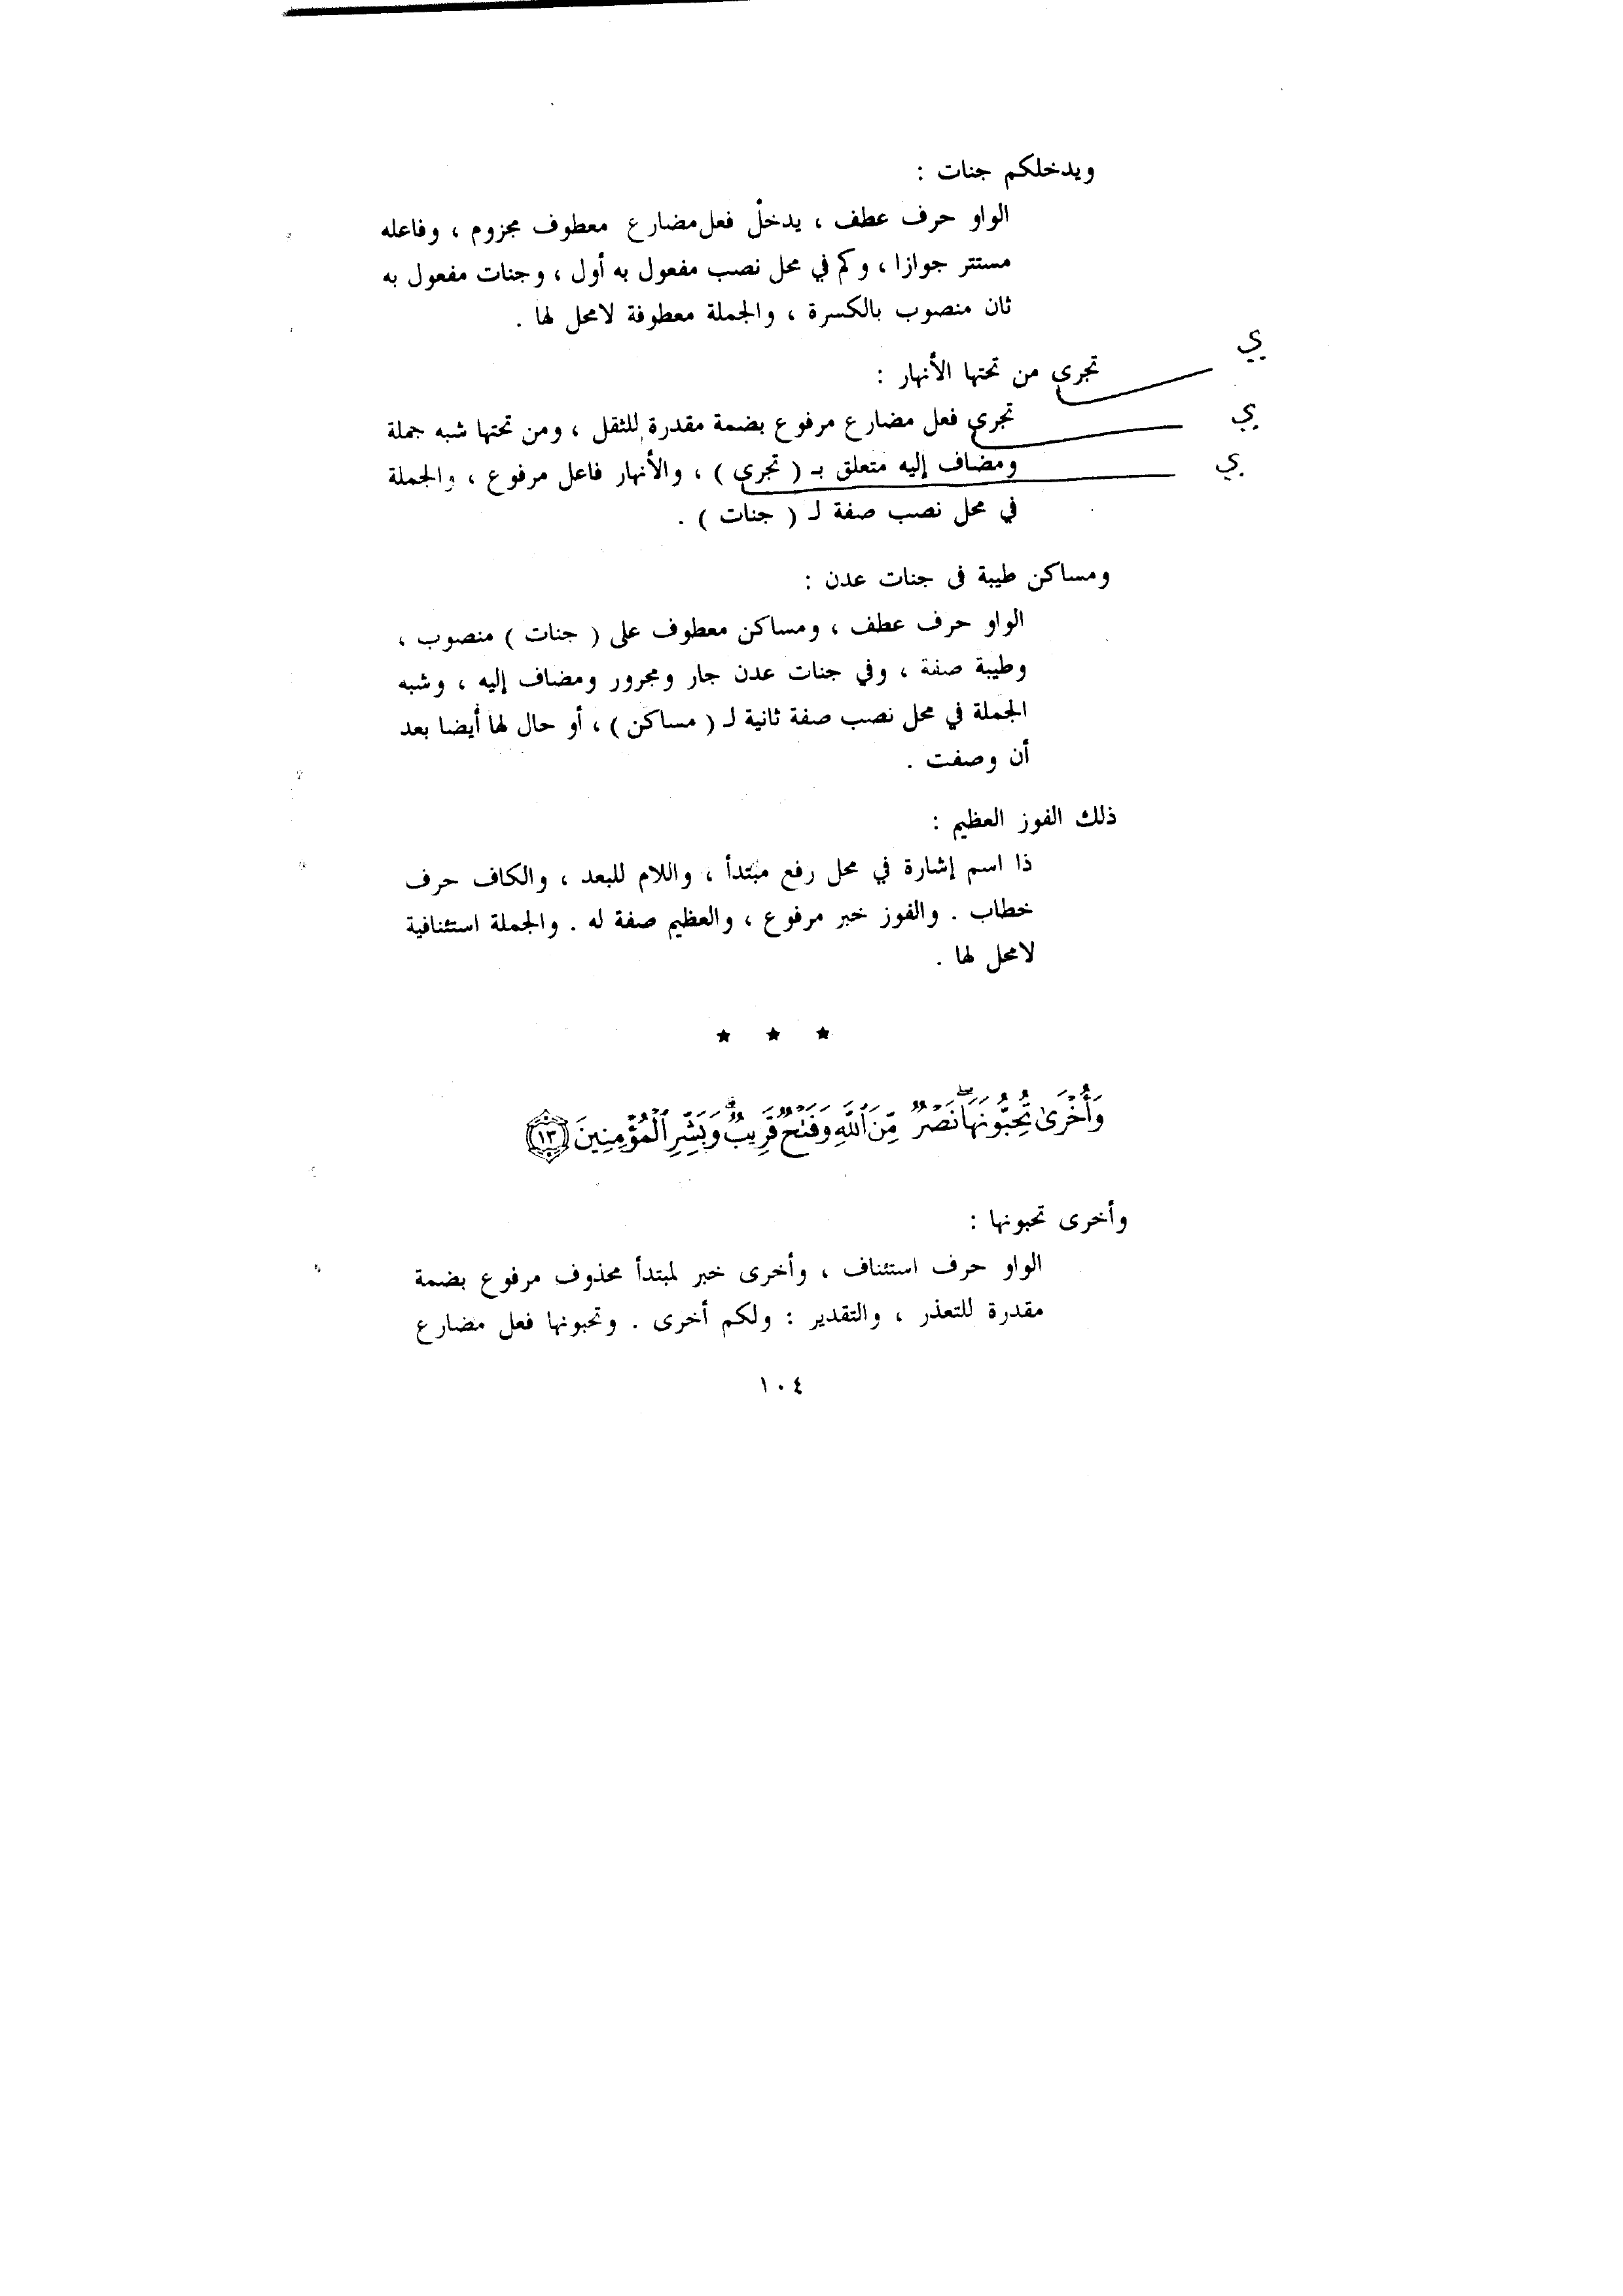 ويدخلكم جنات :
الواو حرف عطف ، يدخلْ فعل مضارع معطوف مجزوم ، وفاعله
مستتر جوازا ، وكم في محل نصب مفعول به أول ، وجنات مفعول به
ثان منصوب بالكسرة ، والجملة معطوفة لامحل لها .
ي
تجرى من تحتها الأنهار :
ي
تجرى فعل مضارع مرفوع بضمة مقدرة للثقل ، ومن تحتها شبه جملة
ي
ومضاف إليه متعلق بـ ( تجرى ) ، والأنهار فاعل مرفوع ، والجملة
في محل نصب صفة لـ ( جنات ) .
ومساكن طيبة فى جنات عدن :
الواو حرف عطف ، ومساكن معطوف على ( جنات ) منصوب ،
وطيبة صفة ، وفي جنات عدن جار ومجرور ومضاف إليه ، وشبه
الجملة في محل نصب صفة ثانية لـ ( مساكن ) ، أو حال لها أيضا بعد
أن وصفت .
ذلك الفوز العظيم :
ذا اسم إشارة في محل رفع مبتدأ ، واللام للبعد ، والكاف حرف
خطاب . والفوز خبر مرفوع ، والعظيم صفة له . والجملة استئنافية
لامحل لها .
★ ★ ★
وَأُخْرَىٰ تُحِبُّونَهَا ۖ نَصْرٌ مِّنَ ٱللَّهِ وَفَتْحٌ قَرِيبٌ ۗ وَبَشِّرِ ٱلْمُؤْمِنِينَ ١٣
وأخرى تحبونها :
الواو حرف استئناف ، وأخرى خبر لمبتدأ محذوف مرفوع بضمة
مقدرة للتعذر ، والتقدير : ولكم أخرى . وتحبونها فعل مضارع
١٠٤